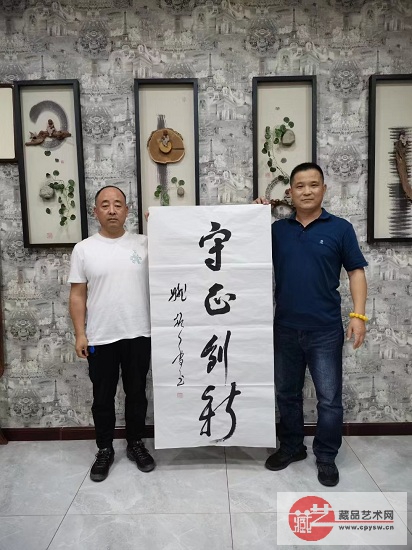 守正创新
藏品艺术网
www.cpysw.cn